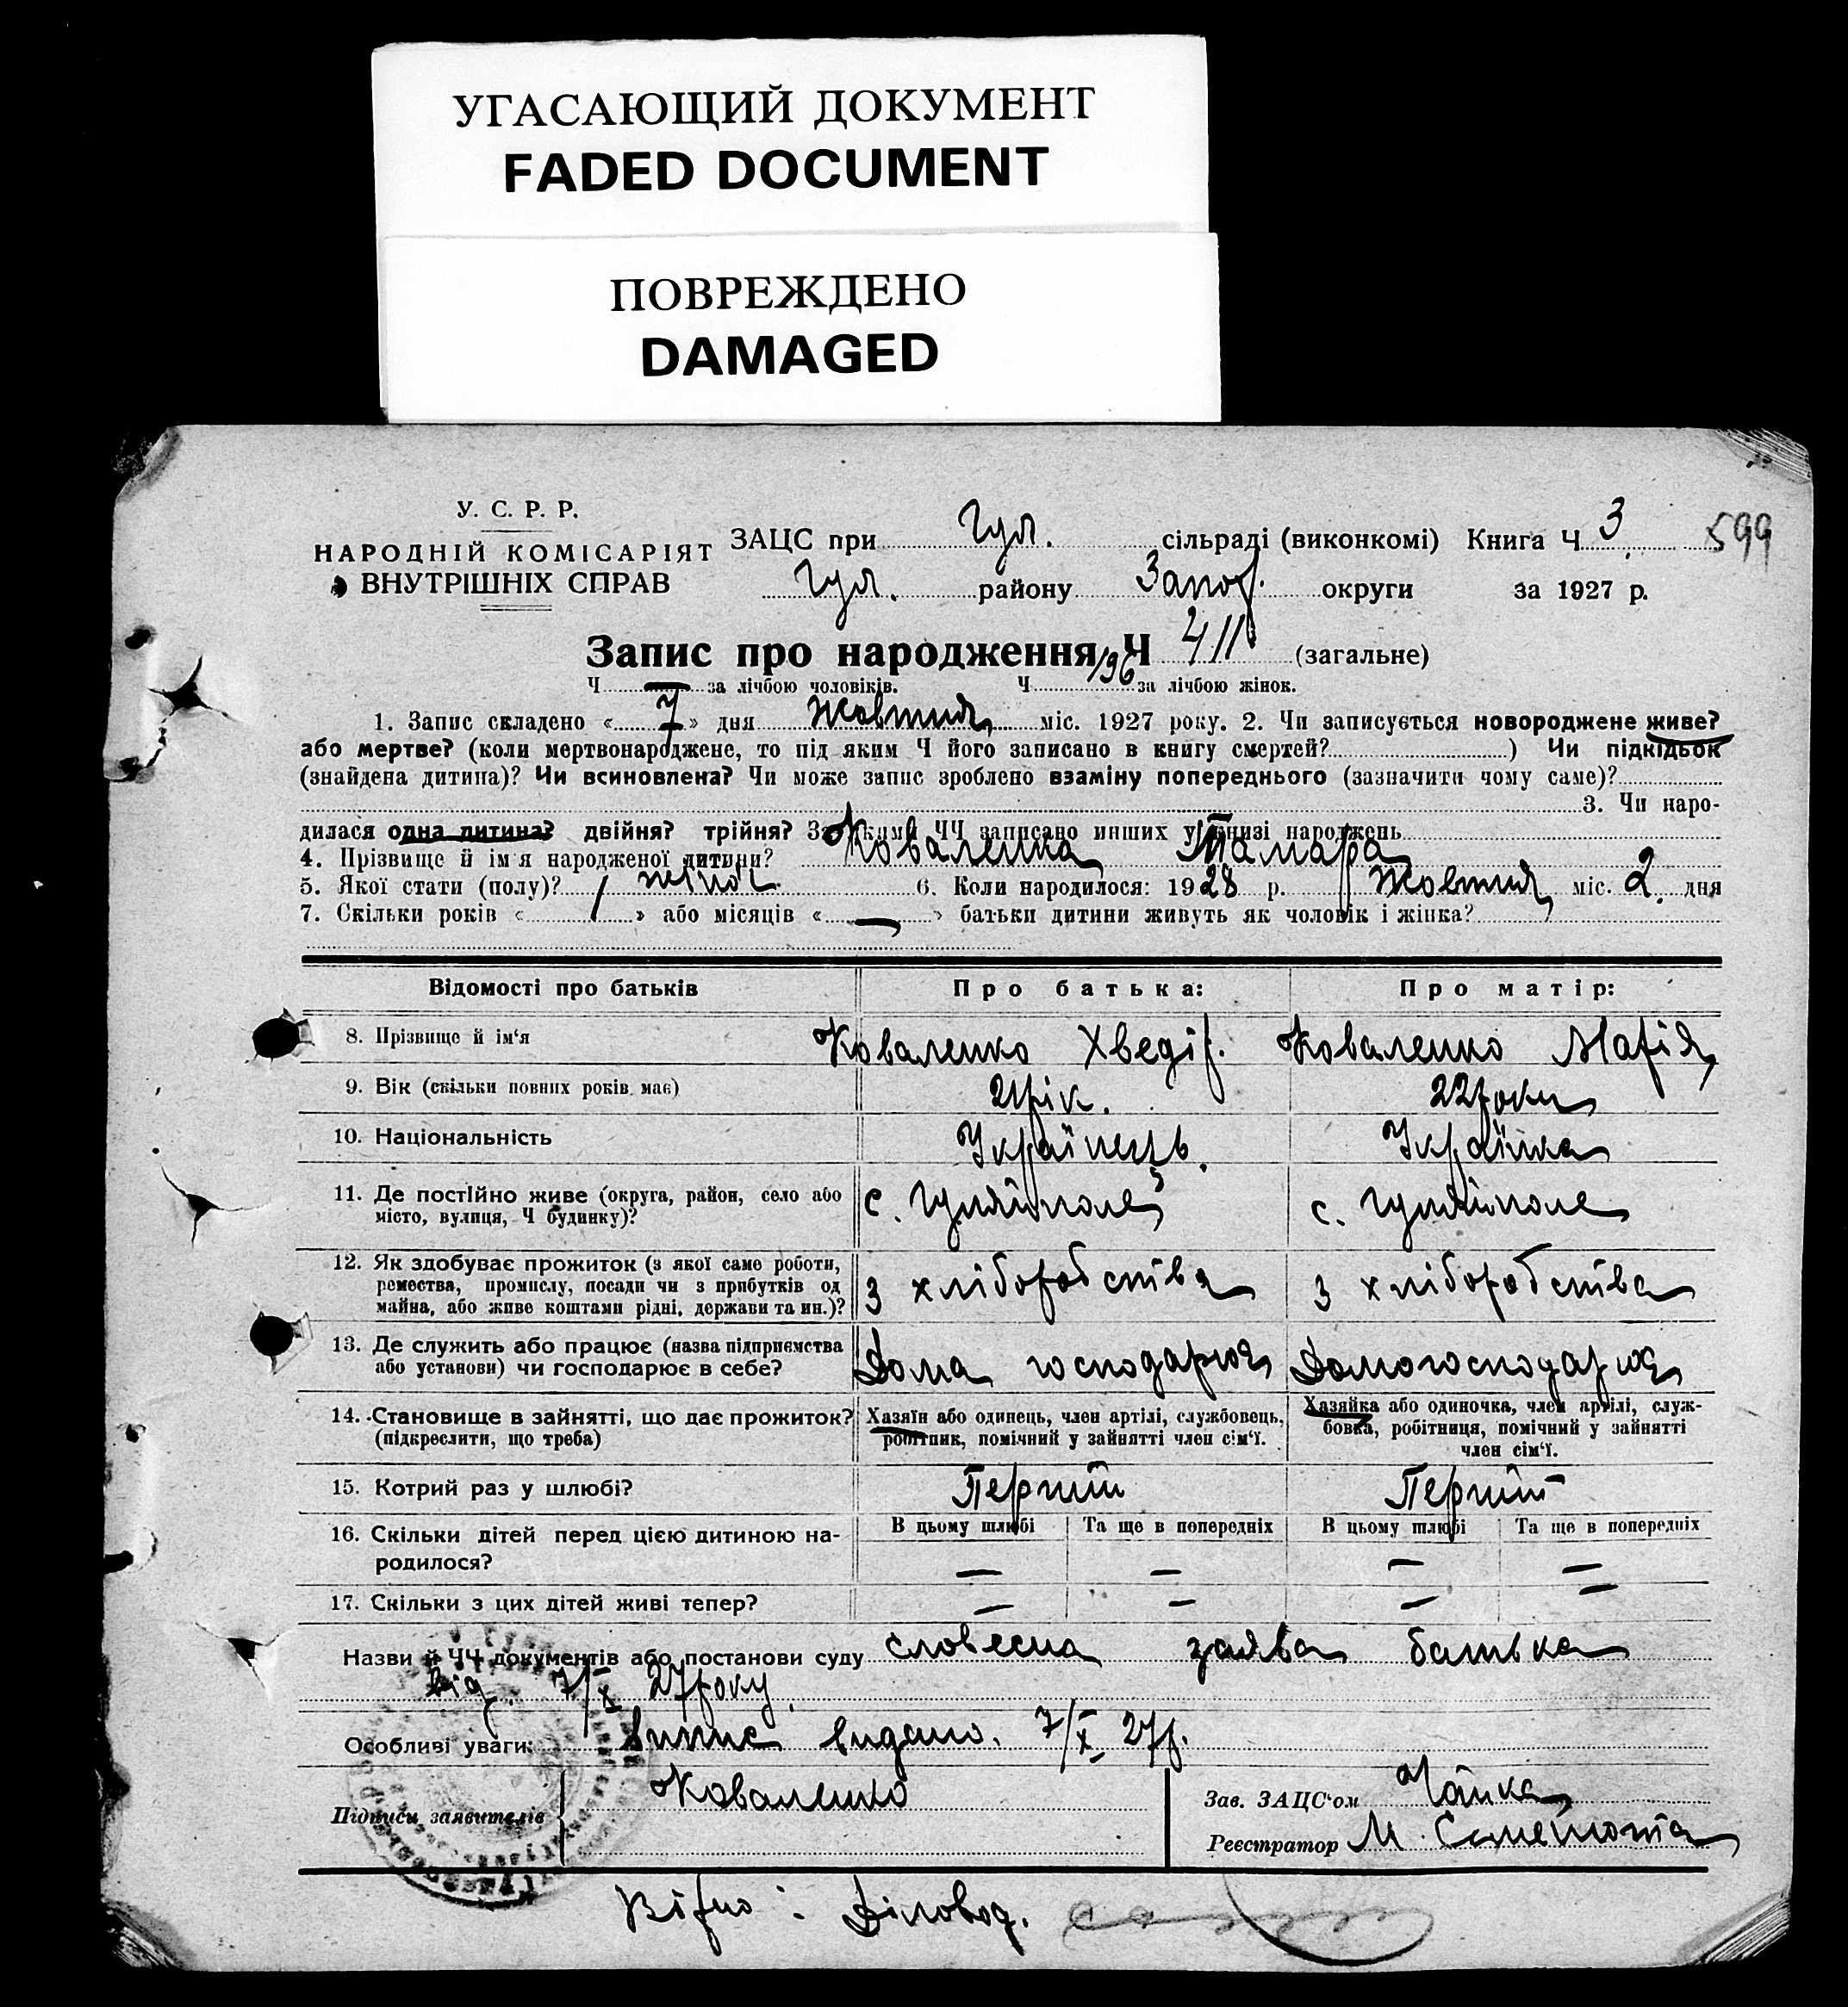 УГАСАЮЩИЙ ДОКУМЕНТ
FADED DOCUMENT
ПОВРЕЖДЕНО
DAMAGED
У. С. Р. Р.
НАРОДНІЙ КОМІСАРІЯТ
ВНУТРІШНІХ СПРАВ
ЗАЦС при Гул. сільраді (виконкомі) Книга Ч 3 599
Гул. району Запор. округи за 1927 р.
Запис про народження Ч 411 (загальне)
Ч — за лічбою чоловіків. Ч 196 за лічбою жінок.
1. Запис складено « 7 » дня жовтня міс. 1927 року. 2. Чи записується новороджене живе?
або мертве? (коли мертвонароджене, то під яким Ч його записано в книгу смертей? ) Чи підкідьок
(знайдена дитина)? Чи всиновлена? Чи може запис зроблено взаміну попереднього (зазначити чому саме)?
3. Чи наро-
дилася одна дитина? двійня? трійня? За якими ЧЧ записано инших у книзі народжень
4. Прізвище й ім'я народженої дитини? Коваленка Тамара
5. Якої стати (полу)? жіноч. 6. Коли народилося: 1928 р. Жовтня міс. 2 дня
7. Скільки років « 1 » або місяців « — » батьки дитини живуть як чоловік і жінка?
Відомості про батьків Про батька: Про матір:
8. Прізвище й ім'я Коваленко Хведір. Коваленко Марія
9. Вік (скільки повних років має) 21 рік. 22 роки
10. Національність Українець. Українка
11. Де постійно живе (округа, район, село або місто, вулиця, Ч будинку)? с. Гуляйполе с. Гуляйполе
12. Як здобуває прожиток (з якої саме роботи, ремества, промислу, посади чи з прибутків од майна, або живе коштами рідні, держави та ин.)? З хліборобства З хліборобства
13. Де служить або працює (назва підприємства або установи) чи господарює в себе? Дома господарює Домогосподарює
14. Становище в зайнятті, що дає прожиток? (підкреслити, що треба) Хазяїн або одинець, член артілі, службовець, робітник, помічний у зайнятті член сім'ї. Хазяйка або одиночка, член артілі, служ-
бовка, робітниця, помічний у зайнятті
член сім'ї.
15. Котрий раз у шлюбі? Перший Перший
16. Скільки дітей перед цією дитиною на-
родилося? В цьому шлюбі — Та ще в попередніх — В цьому шлюбі — Та ще в попередніх —
17. Скільки з цих дітей живі тепер? — — — —
Назви й ЧЧ документів або постанови суду словесна заява батька
від 7/X 27 року
Особливі уваги: Випис видано. 7/X 27 р.
Підписи заявителів Коваленко
Зав. ЗАЦС'ом Чайка
Реєстратор М.
Вірно: Діловод.